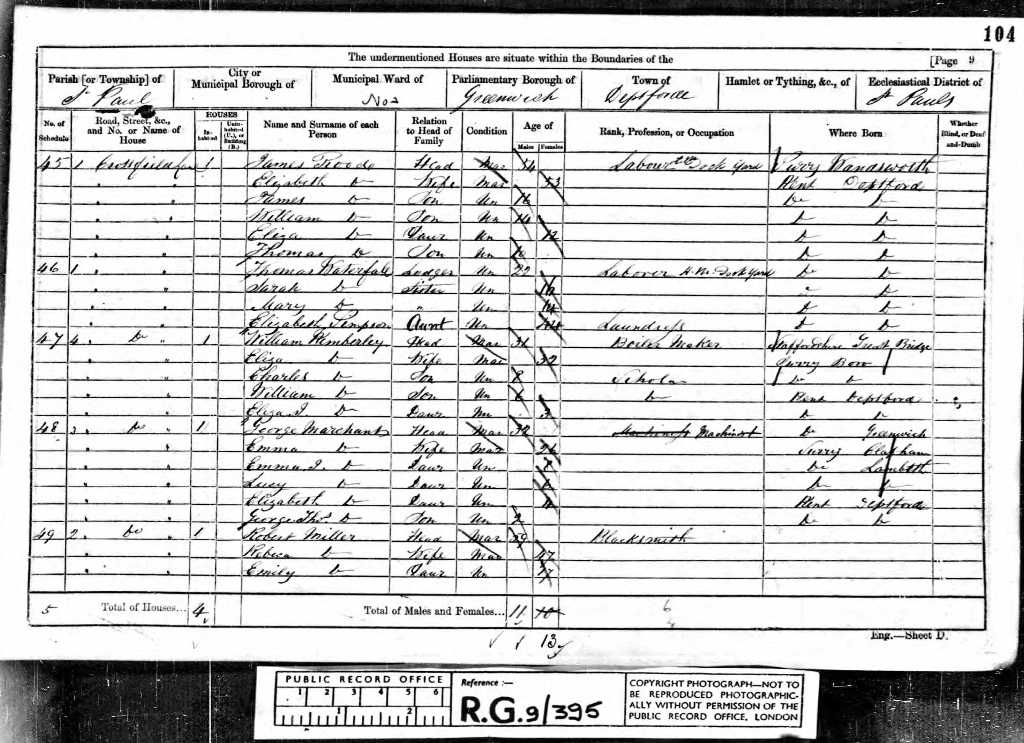 104
The undermentioned Houses are situate within the Boundaries of the
[Page 9
Parish [or Township] of
City or Municipal Borough of
Municipal Ward of
Parliamentary Borough of
Town of
Hamlet or Tything, &c., of
Ecclesiastical District of
St Paul
No 2
Greenwich
Deptford
St Pauls
No. of Schedule
Road, Street, &c., and No. or Name of House
HOUSES
Inhabited
Uninhabited (U.), or Building (B.)
Name and Surname of each Person
Relation to Head of Family
Condition
Age of
Males
Females
Rank, Profession, or Occupation
Where Born
Whether Blind, or Deaf-and-Dumb
45 1 Crossfield 1 James Head Mar Labour Dock Yard Surry Wandsworth
Elizabeth Do Wife Mar 53 Kent Deptford
James Do Son Un 16 Do Do
William Do Son Un 14 Do Do
Eliza Do Daur Un 12 Do Do
Thomas Do Son Un 10 Do Do
46 1 Thomas Waterfall Lodger Un 22 Laborer H.M. Dock Yard Do Do
Sarah Do Sister Un 16 Do
Mary Do " Un 14 Do Do
Elizabeth Simpson Aunt Un Laundress Do Do
47 4 Do 1 William Kimberley Head Mar 31 Boiler Maker Staffordshire Bridge
Eliza Do Wife Mar 32 Surry Bow
Charles Do Son Un 8 Scholar Do Do
William Do Son Un 6 Do Kent Deptford
Eliza J. Do Daur Un 3 Do Do
48 3 Do 1 George Marchant Head Mar 32 Machinist Do Greenwich
Emma Do Wife Mar 36 Surry Clapham
Emma J. Do Daur Un Do Lambeth
Lucy Do Daur Un Do Do
Elizabeth Do Daur Un 4 Kent Deptford
George Thos. Do Son Un 2 Do Do
49 2 Do 1 Robert Miller Head Mar 59 Blacksmith
Rebeca Do Wife Mar 47
Emily Do Daur Un 17
5 Total of Houses... 4 Total of Males and Females... 11 10
6
13
Eng.—Sheet D.
PUBLIC RECORD OFFICE
1 2 3 4 5 6
1 2
Reference :-
R.G. 9/395
COPYRIGHT PHOTOGRAPH—NOT TO BE REPRODUCED PHOTOGRAPHICALLY WITHOUT PERMISSION OF THE PUBLIC RECORD OFFICE, LONDON